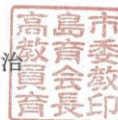 治
高島市
教育委
員会教
育長印